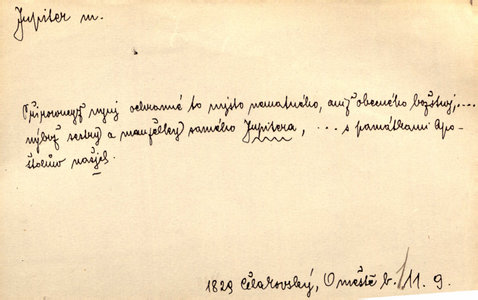 Jupiter m.
Přirovnejž nynj ochranné to mjsto nematného, anjž obecného božstwj, ....
nýbrž sestry a manželky samého Jupitera, ... s památkami Apo-
štolůw našjch.
1829 Čelakovský, O městě b. / 11. 9.